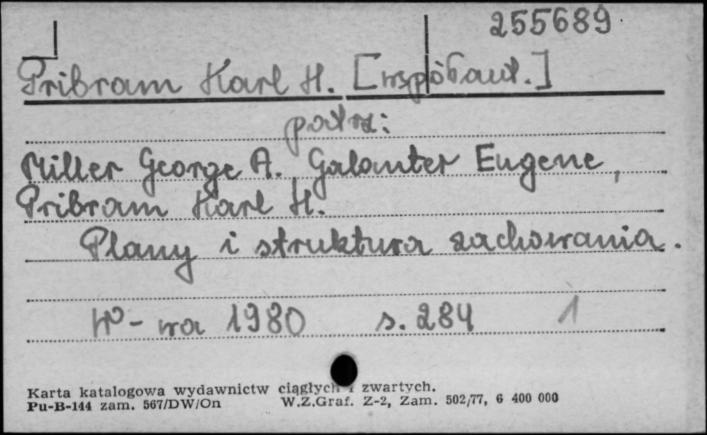 255689
Pribram Karl H. [współaut.]
patrz:
Miller George A. Galanter Eugene,
Pribram Karl H.
Plany i struktura zachowania.
W-wa 1980 s. 284 1
Karta katalogowa wydawnictw ciągłych i zwartych.
Pu-B-144 zam. 567/DW/On W.Z.Graf. Z-2, Zam. 502/77, 6 400 000